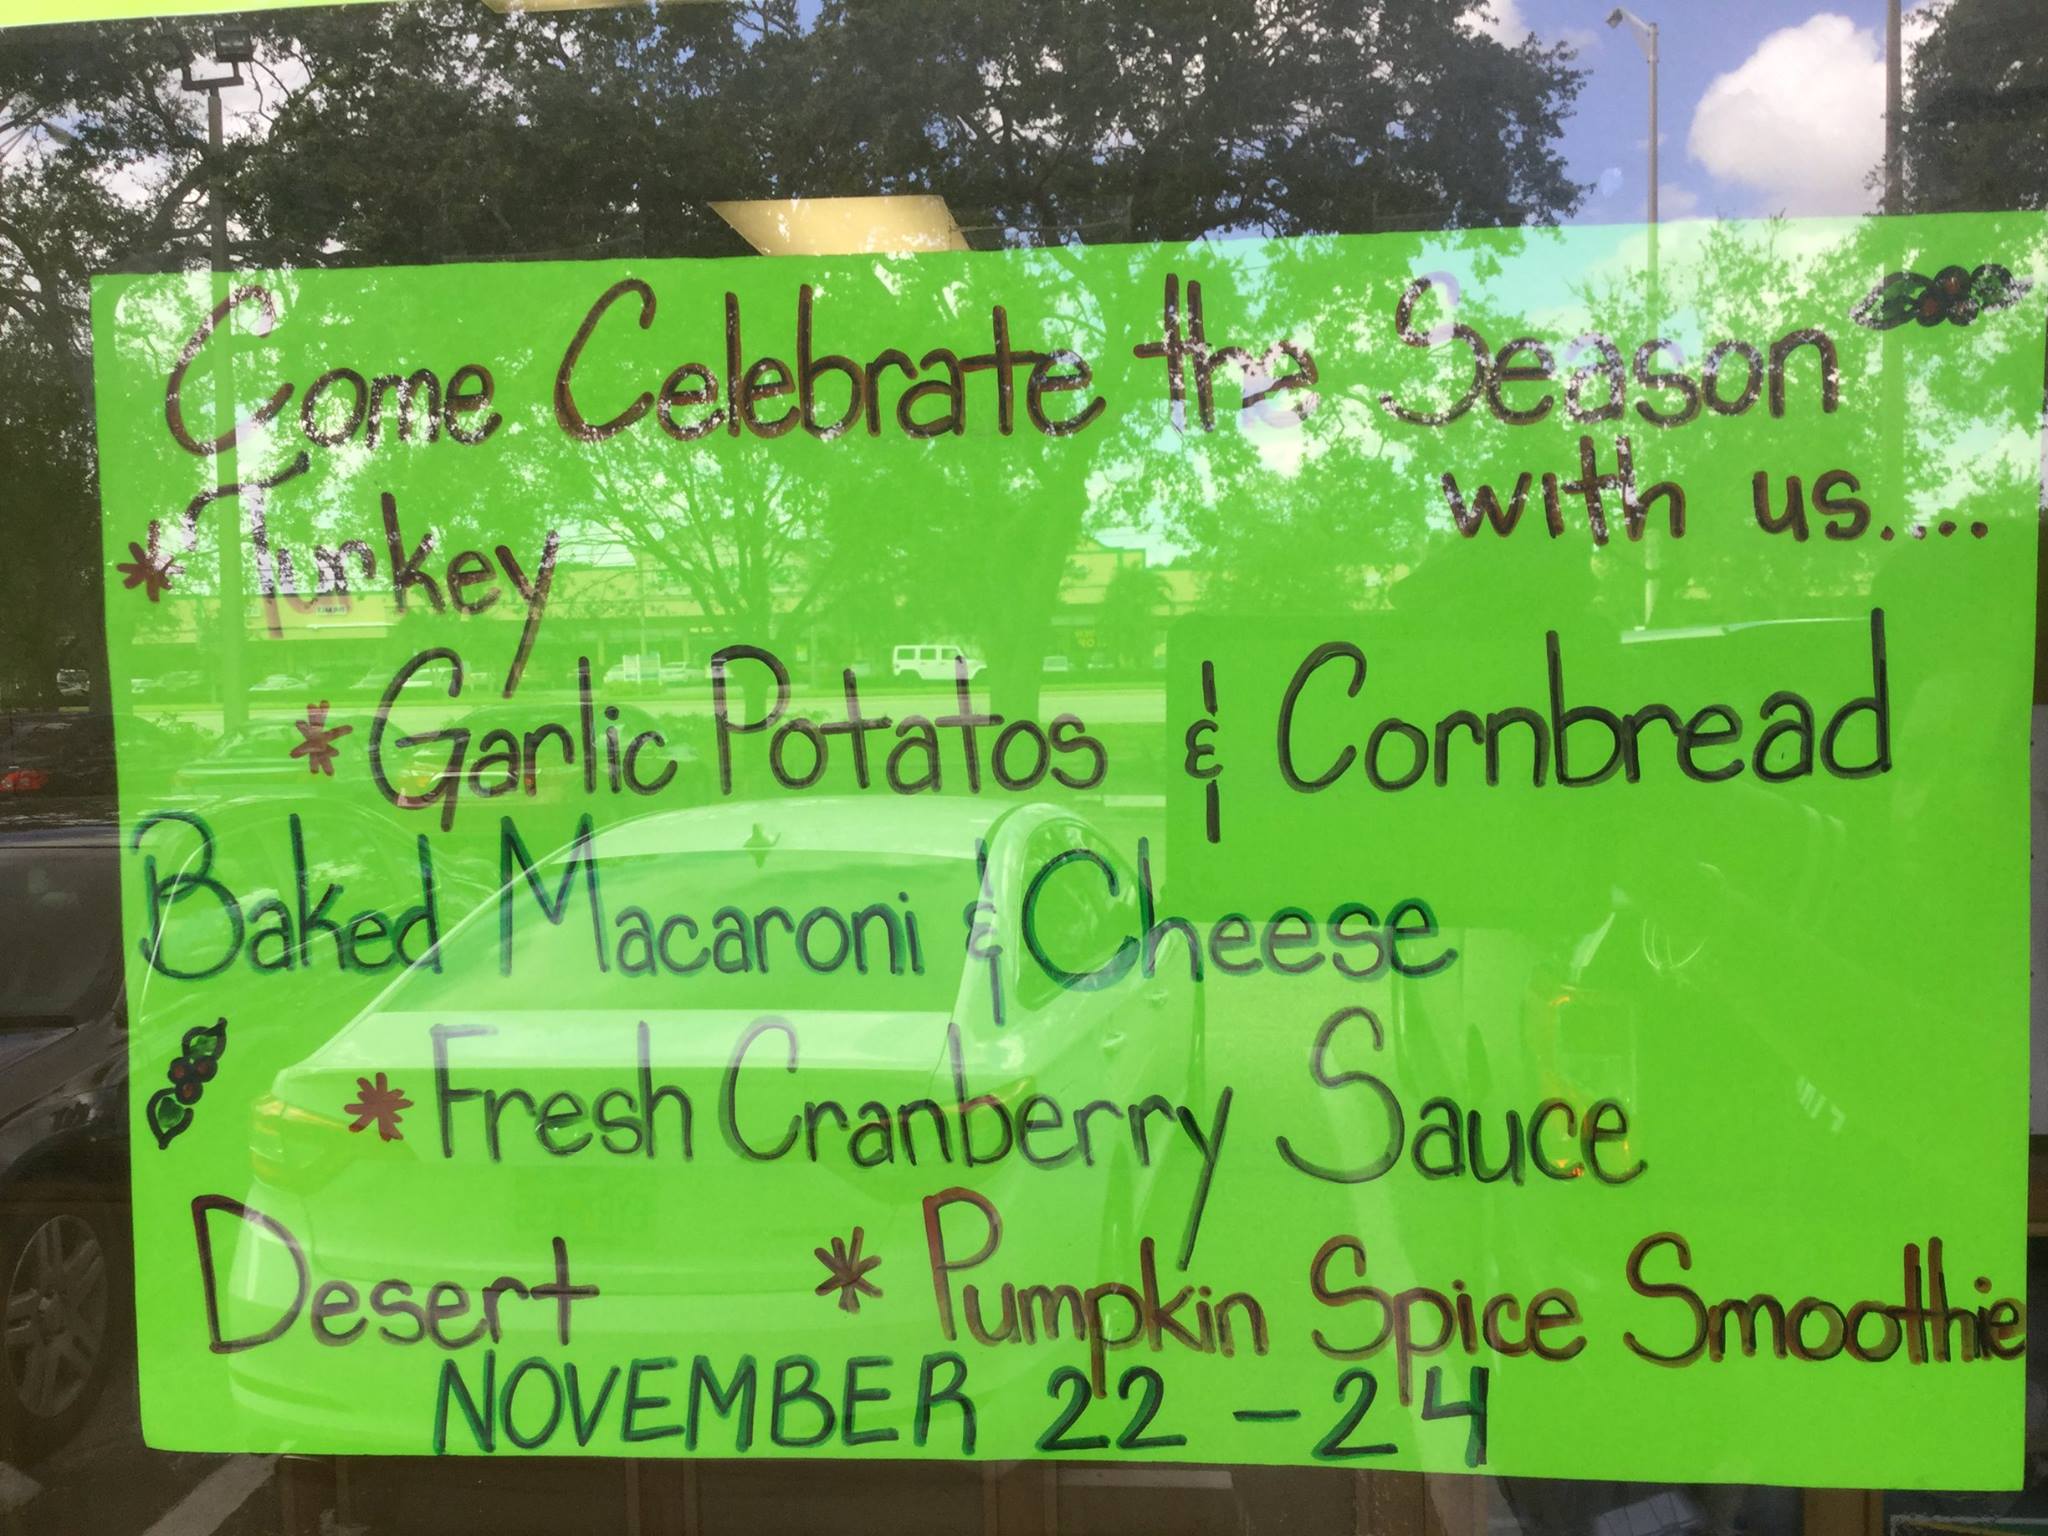 Come Celebrate the Season
with us....
* Turkey
* Garlic Potatos & Cornbread
Baked Macaroni & Cheese
* Fresh Cranberry Sauce
Desert * Pumpkin Spice Smoothie
NOVEMBER 22 - 24